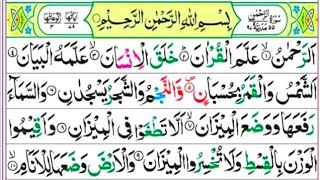 بِسْمِ اللّٰهِ الرَّحْمٰنِ الرَّحِيْمِ
اَلرَّحْمٰنُ ۙ عَلَّمَ الْقُرْاٰنَ ؕ خَلَقَ الْاِنْسَانَ ۙ عَلَّمَهُ الْبَيَانَ
اَلشَّمْسُ وَالْقَمَرُ بِحُسْبَانٍ ۪ وَّالنَّجْمُ وَالشَّجَرُ يَسْجُدٰنِ وَالسَّمَآءَ
رَفَعَهَا وَوَضَعَ الْمِيْزَانَ ۙ اَلَّا تَطْغَوْا فِى الْمِيْزَانِ وَاَقِيْمُوا
الْوَزْنَ بِالْقِسْطِ وَلَا تُخْسِرُوا الْمِيْزَانَ وَالْاَرْضَ وَضَعَهَا لِلْاَنَامِ